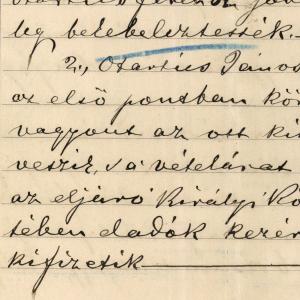 leg bekebeleztessék.
2., Martius János
az első pontban kör
vagyont az ott ki
veszik, s a vételárat
az eljáró Királyi Kö
tében eladók kezér
kifizetik